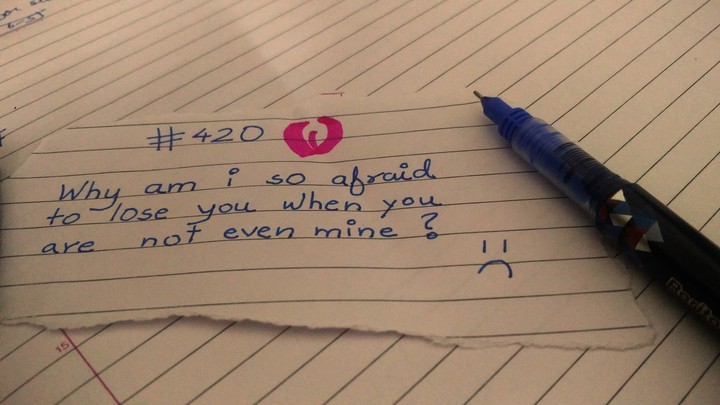 #420
Why am i so afraid
to lose you when you
are not even mine ?
15